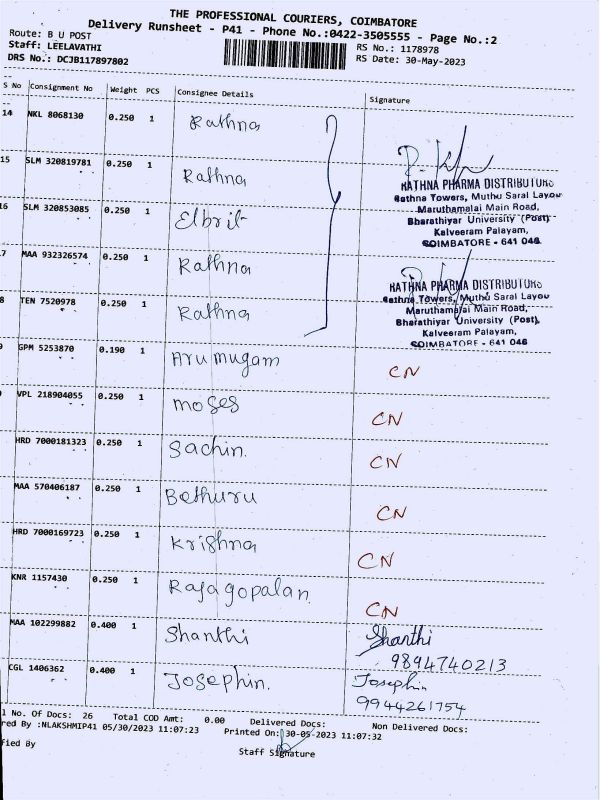 THE PROFESSIONAL COURIERS, COIMBATORE
Delivery Runsheet - P41 - Phone No.:0422-3505555 - Page No.:2
Route: B U POST
Staff: LEELAVATHI RS No.: 1178978
DRS No.: DCJB117897802 RS Date: 30-May-2023
S No Consignment No Weight PCS Consignee Details Signature
14 NKL 8068130 0.250 1 Rathna
15 SLM 320819781 0.250 1 Rathna
RATHNA PHARMA DISTRIBUTORS
Rathna Towers, Muthu Saral Layou
Maruthamalai Main Road,
Bharathiyar University (Post)
Kalveeram Palayam,
COIMBATORE - 641 046
6 SLM 320853085 0.250 1 Elbrit
7 MAA 932326574 0.250 1 Rathna
RATHNA PHARMA DISTRIBUTORS
Rathna Towers, Muthu Saral Layou
Maruthamalai Main Road,
Bharathiyar University (Post),
Kalveeram Palayam,
COIMBATORE - 641 046
8 TEN 7520978 0.250 1 Rathna
GPM 5253870 0.190 1 Arumugam CN
VPL 218904055 0.250 1 moses CN
HRD 7000181323 0.250 1 Sachin. CN
MAA 570406187 0.250 1 Bethuru CN
HRD 7000169723 0.250 1 Krishna CN
KNR 1157430 0.250 1 Rajagopalan. CN
MAA 102299882 0.400 1 Shanthi Shanthi
9894740213
CGL 1406362 0.400 1 Josephin. Josephin
9944261754
l No. Of Docs: 26 Total COD Amt: 0.00 Delivered Docs: Non Delivered Docs:
red By :NLAKSHMIP41 05/30/2023 11:07:23 Printed On: 30-05-2023 11:07:32
fied By Staff Signature